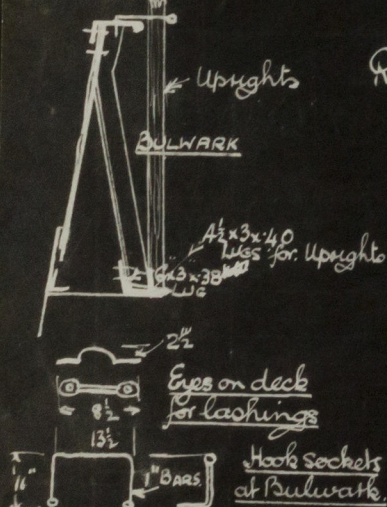 Uprights
BULWARK
4½×3×·40
LUGS for Uprights
6"×3×·38
LUG
2½"
Eyes on deck
for lashings
8½
13½
1" BARS
Hook sockets
at Bulwark.